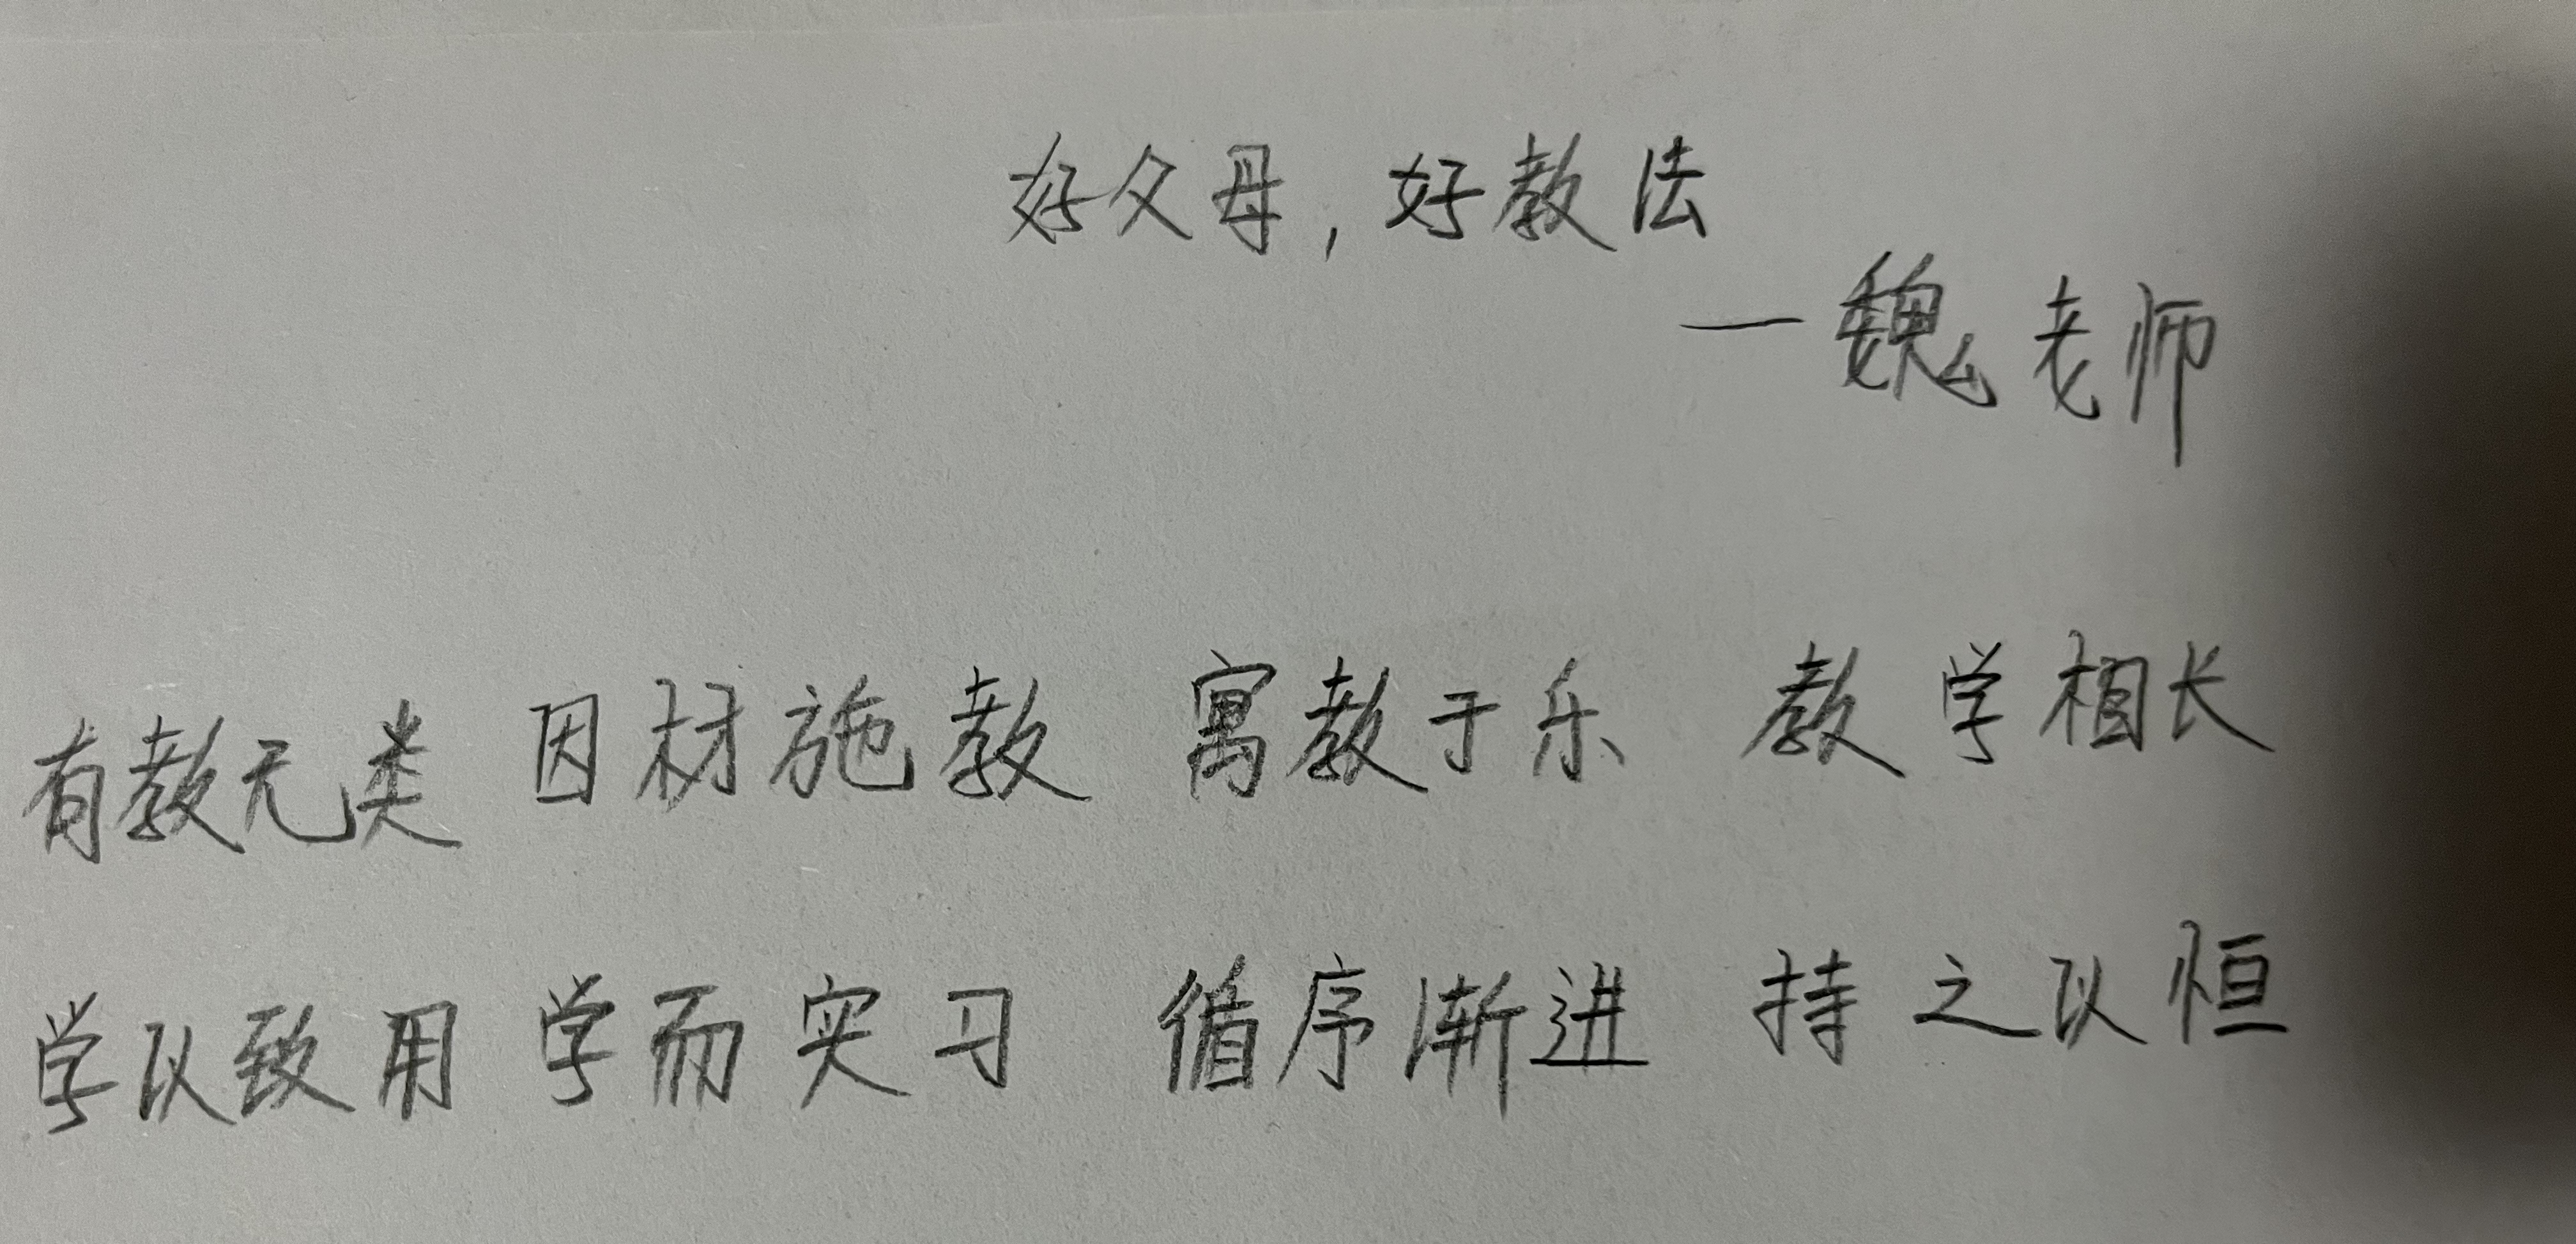 好父母，好教法
—魏老师
有教无类 因材施教 寓教于乐 教学相长
学以致用 学而实习 循序渐进 持之以恒